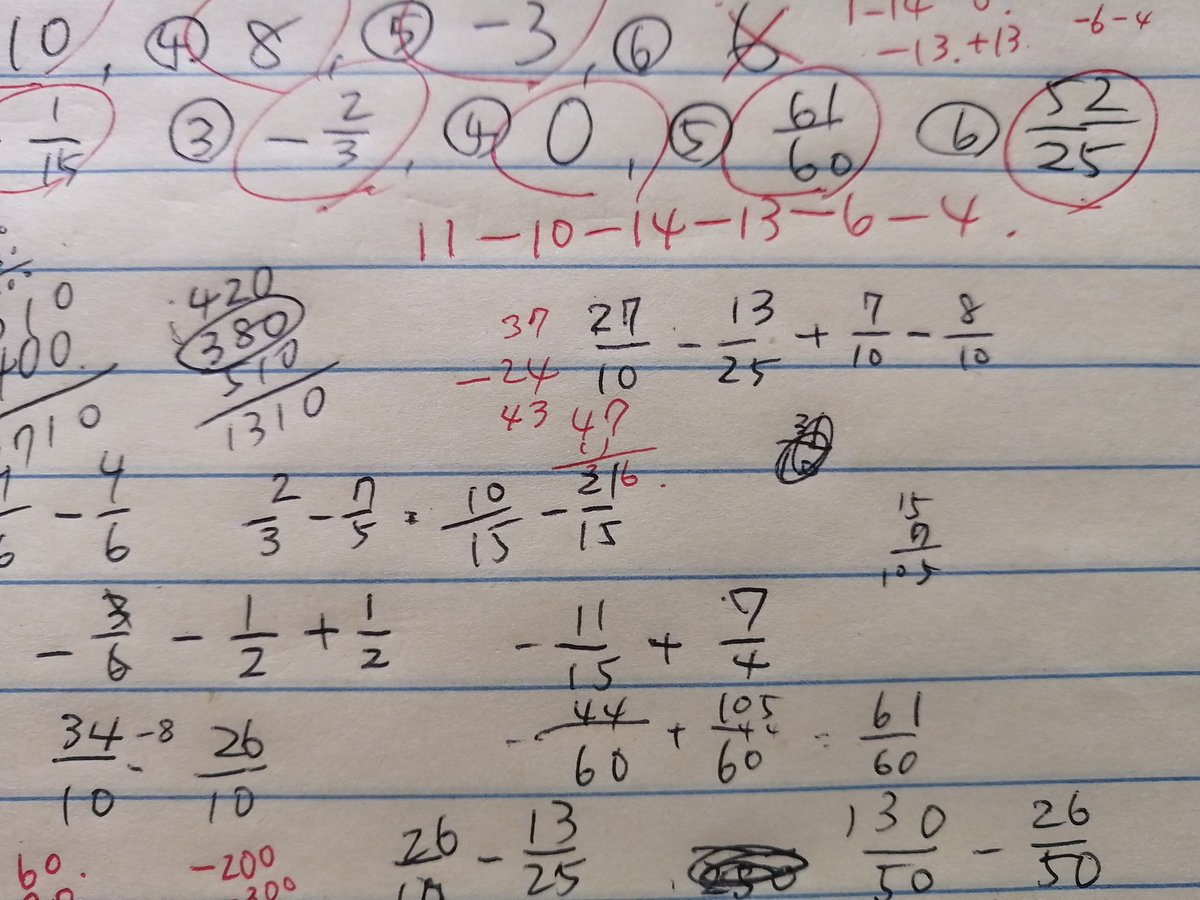 10, ④ 8, ⑤ -3, ⑥ 6
1-14
-13.+13
-6-4
1/15 ③ -2/3, ④ 0, ⑤ 61/60 ⑥ 52/25
11-10-14-13-6-4.
420
380
510
1310
400
710
37
-24
43 47
216.
27/10 - 13/25 + 7/10 - 8/10
- 4/6
2/3 - 7/5 = 10/15 - 21/15
15
7
105
- 3/6 - 1/2 + 1/2
- 11/15 + 7/4
34/10 -8 - 26/10
- 44/60 + 105/60 = 61/60
60.
-200
26/10 - 13/25
130/50 - 26/50